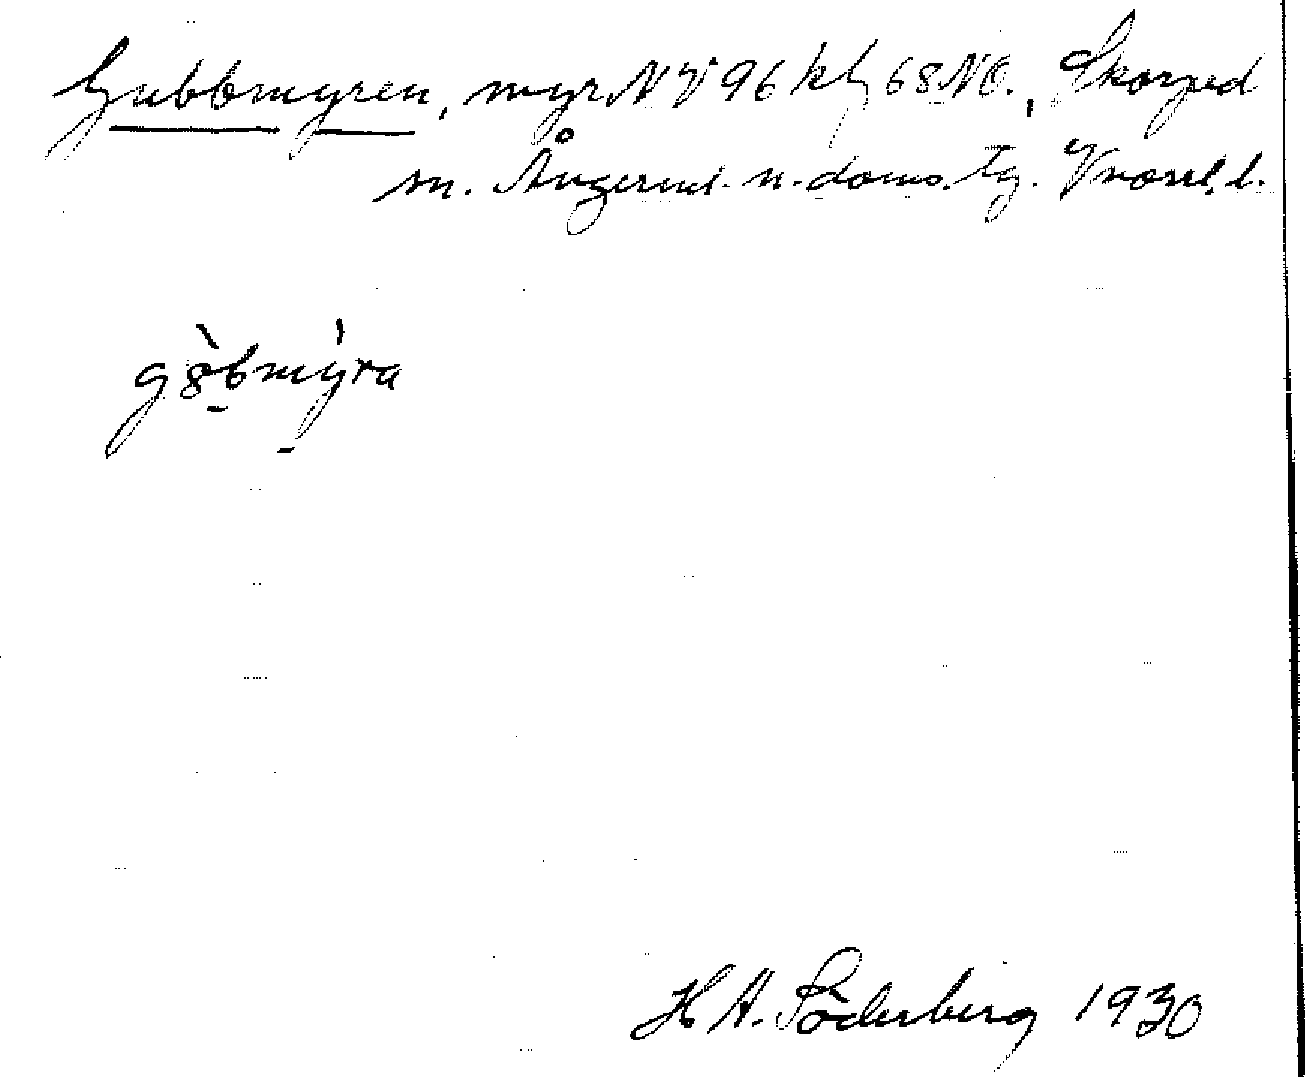 Gubbmyren, myr NV 96 kbl 68 NO., Skorped
sn. Ångerml. n. doms. tg. Vnorrl. l.
gòbmýra
H A. Söderberg 1930